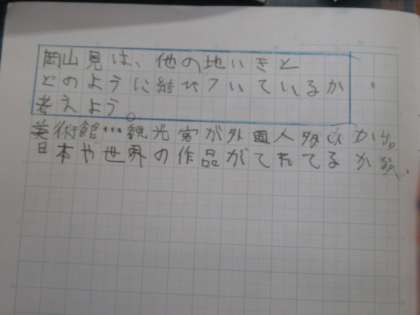 岡山見は、他の地いきと
どのように結びついているか
考えよう。
美術館…観光客が外国人多いから。
日本や世界の作品がてれてるから、